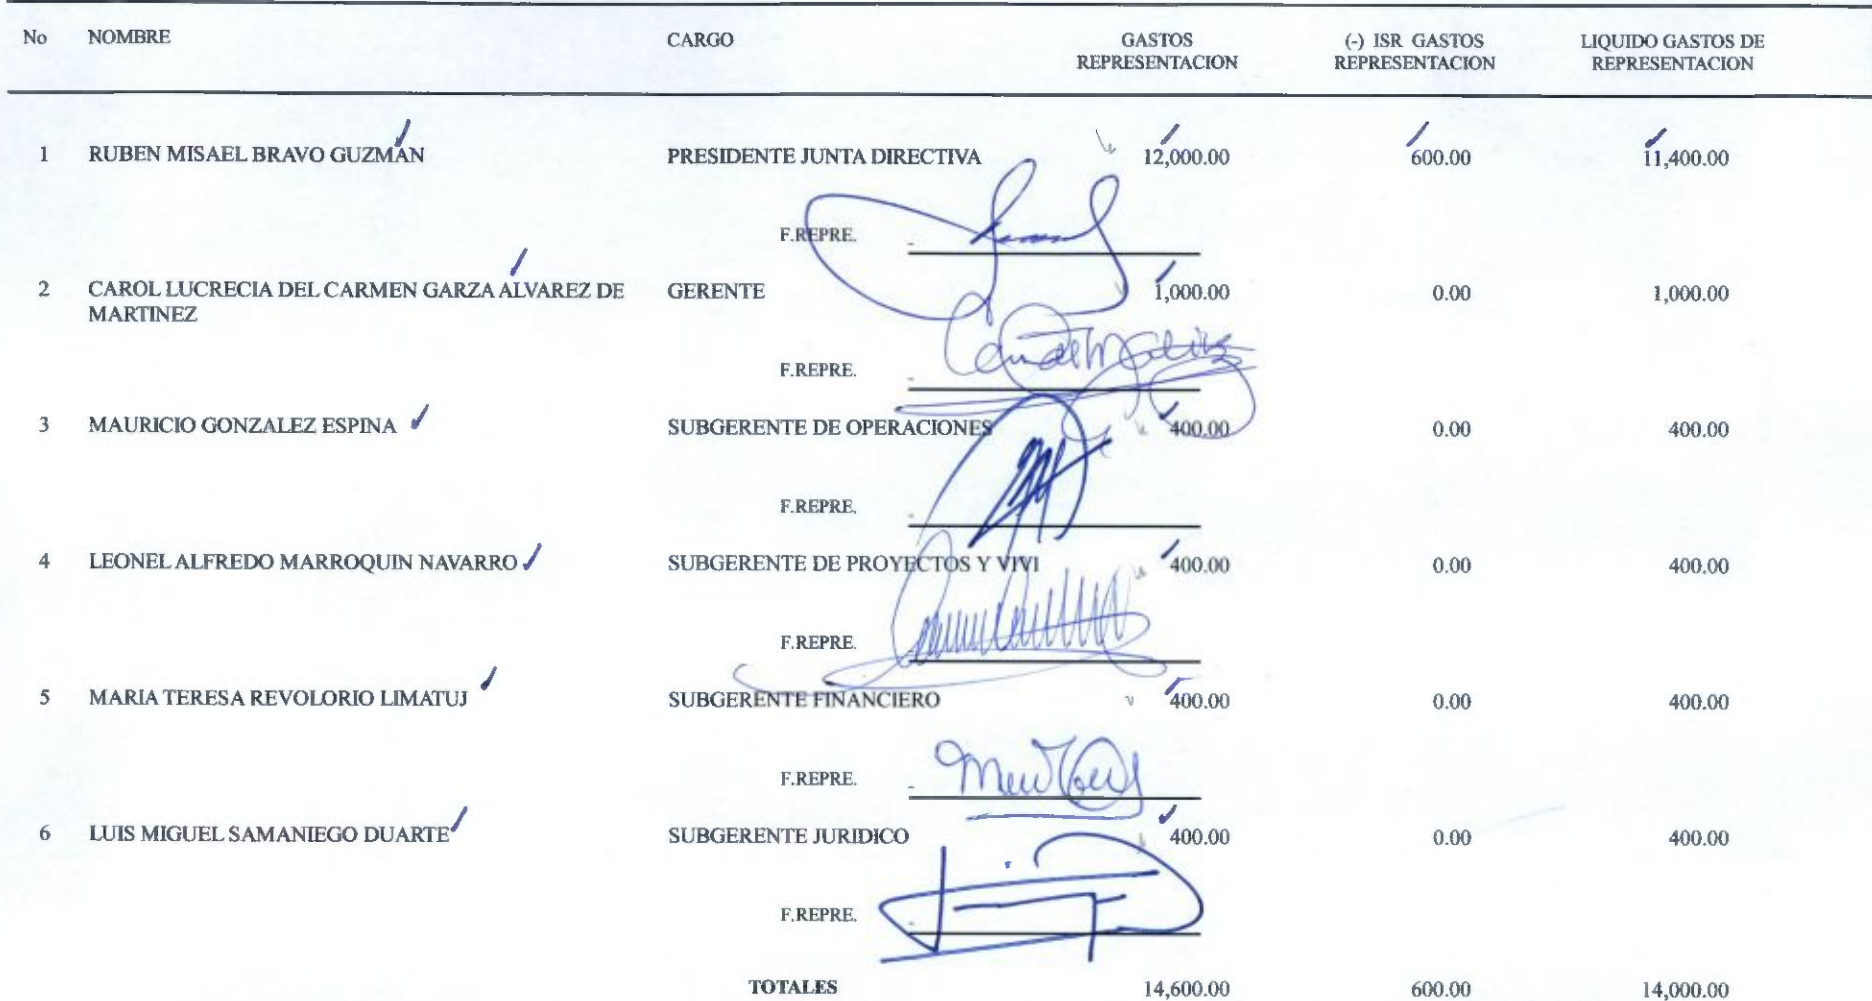 No NOMBRE CARGO GASTOS REPRESENTACION (-) ISR GASTOS REPRESENTACION LIQUIDO GASTOS DE REPRESENTACION
1 RUBEN MISAEL BRAVO GUZMAN PRESIDENTE JUNTA DIRECTIVA 12,000.00 600.00 11,400.00
F.REPRE.
2 CAROL LUCRECIA DEL CARMEN GARZA ALVAREZ DE GERENTE 1,000.00 0.00 1,000.00
MARTINEZ
F.REPRE.
3 MAURICIO GONZALEZ ESPINA SUBGERENTE DE OPERACIONES 400.00 0.00 400.00
F.REPRE.
4 LEONEL ALFREDO MARROQUIN NAVARRO SUBGERENTE DE PROYECTOS Y VIVI 400.00 0.00 400.00
F.REPRE.
5 MARIA TERESA REVOLORIO LIMATUJ SUBGERENTE FINANCIERO 400.00 0.00 400.00
F.REPRE.
6 LUIS MIGUEL SAMANIEGO DUARTE SUBGERENTE JURIDICO 400.00 0.00 400.00
F.REPRE.
TOTALES 14,600.00 600.00 14,000.00